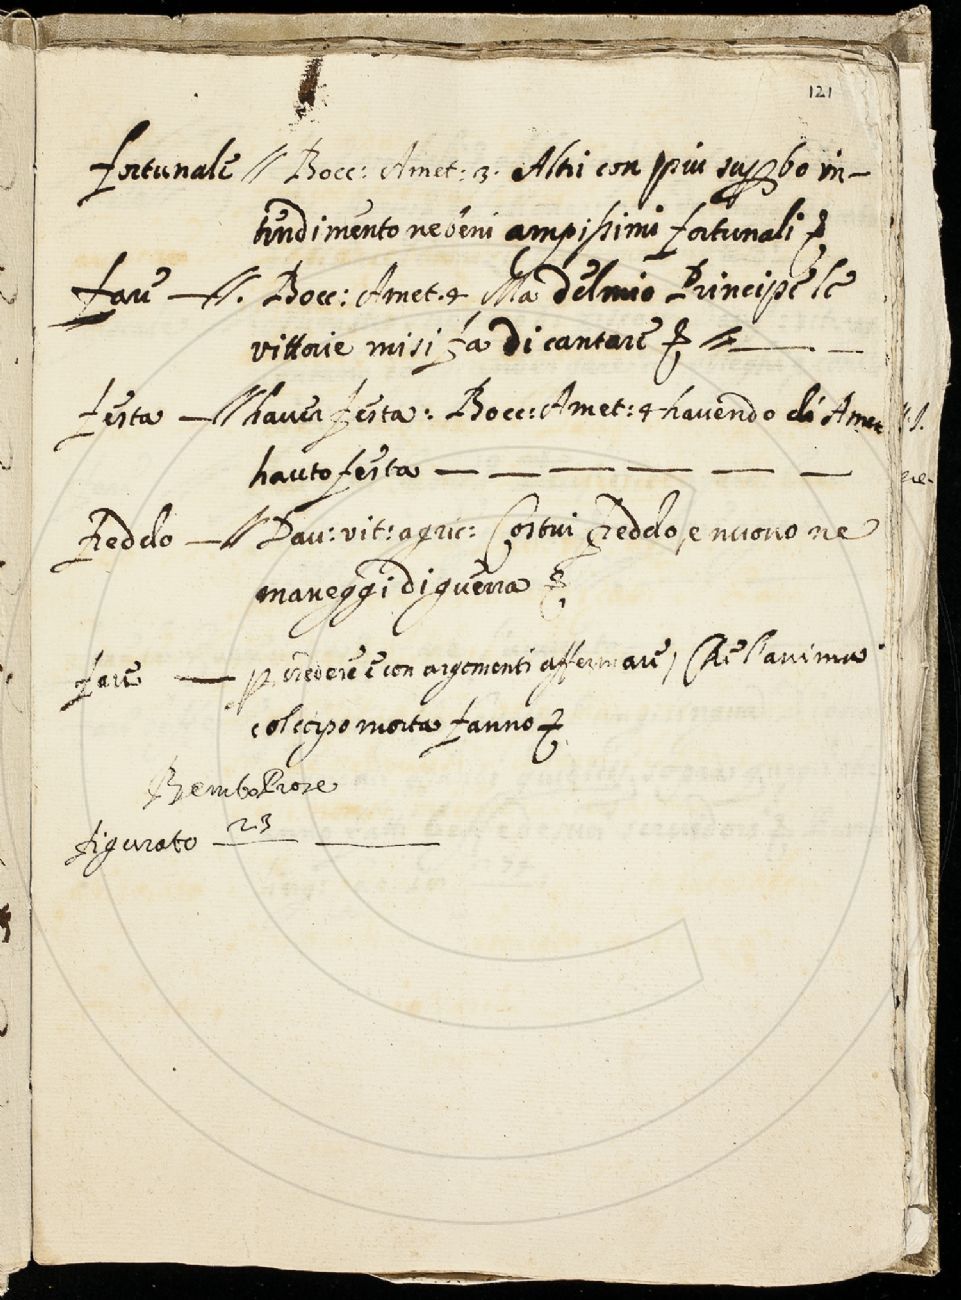 121
fortunale // Bocc: Amet: 3. Altri con più superbo in-
tendimento ne beni ampissimi fortunali &
fare — //. Bocc: Amet. 4 Ma del mio Principe le
vittorie misi fa di cantare & //
festa — // haver festa: Bocc: Amet: 4 havendo di Amet
hauto festa
freddo — // Dav: vit: agric: Costui freddo, e nuovo ne
maneggi di guerra &
fare — credere e con argomenti affermare, che l'anima
col corpo morta fanno &
Bembo Prose
figurato 23